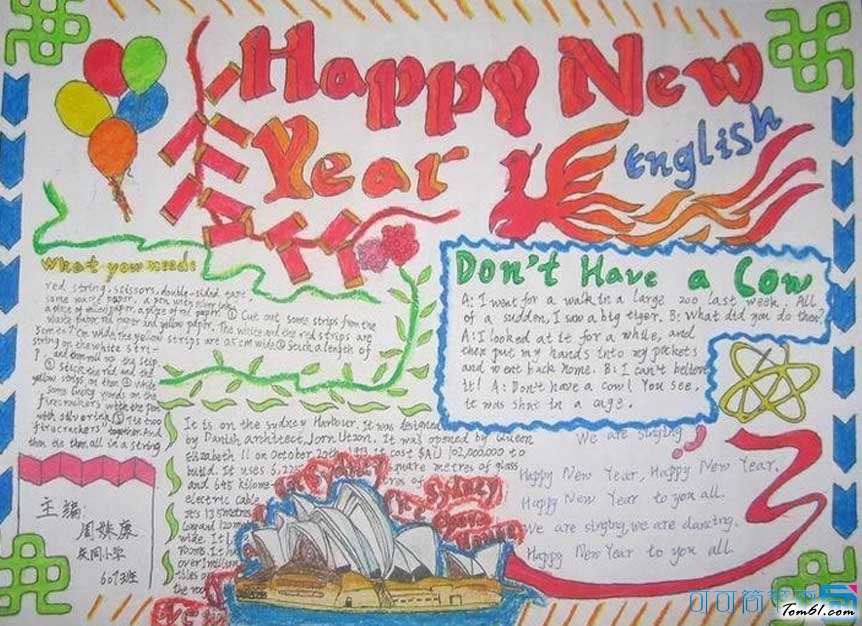 Happy New
Year
English
What you need:
red string, scissors, double-sided tape,
some waste paper, a pen with silver ink,
a piece of white paper, a piece of red paper. ① Cut out some strips from the
waste paper, red paper and yellow paper. The white and the red strips are
5cm to 7cm wide, the yellow strips are 0.5cm wide. ② Stick a length of
string on the white strip
and then roll up the strip
③ Stick the red and the
yellow strips on them. ④ Write
some lucky words on the
firecrackers with the pen
with silver ink. ⑤ Tie two
firecrackers together. And
then tie them all in a string
Don't Have a Cow
A: I went for a walk in a large zoo last week. All
of a sudden, I saw a big tiger. B: What did you do then?
A: I looked at it for a while, and
then put my hands into my pockets
and went back home. B: I can't believe
it! A: Don't have a cow! You see,
it was shut in a cage.
It is on the Sydney Harbour. It was designed
by Danish architect, Jorn Utzon. It was opened by Queen
Elizabeth II on October 20th 1973. It cost $AU 102,000,000 to
build. It uses 6,225 square metres of glass
and 645 kilome- tres of
electric cable
Its 185 metres
long and 120 metres
wide. It
rooms. It has
over 1 million
tiles on
the roof
The Sydney
Opera
House
We are singing
Happy New Year, Happy New Year.
Happy New Year to you all.
We are singing, we are dancing.
Happy New Year to you all.
主编:
周姝廉
小学
607班
可可简笔画
Tom61.com